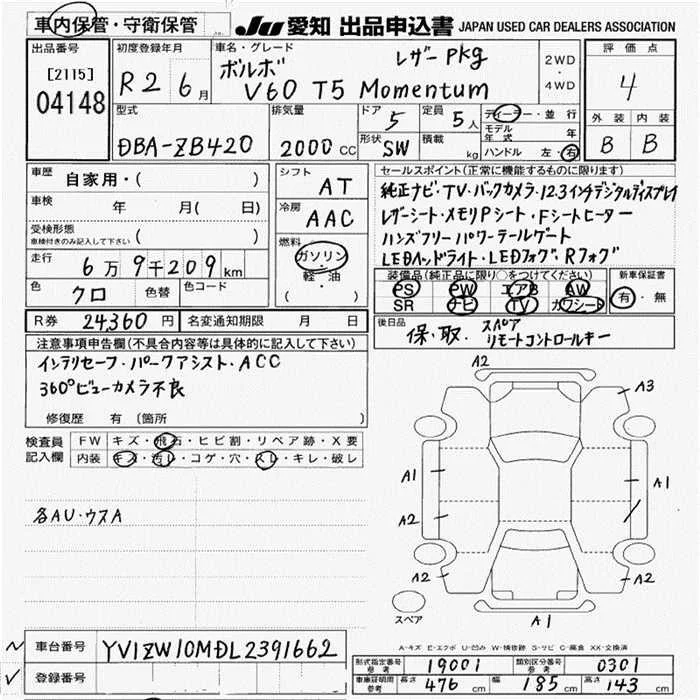 車内保管・守衛保管
JU 愛知 出品申込書 JAPAN USED CAR DEALERS ASSOCIATION
出品番号
[2115]
04148
初度登録年月
R2 6月
車名・グレード
レザーpkg
ボルボ
V60 T5 Momentum
2WD
・
4WD
評価点
4
外装 内装
B B
型式
DBA-ZB420
排気量
2000 CC
ドア
5
定員
5人
形状
SW
積載
kg
ディーラー・並行
モデル年式 年
ハンドル 左・右
車歴 自家用・( )
車検 年 月( 日)
受検形態
車検付きのみ記入して下さい ( )
走行 6万9千209km
色 クロ 色替 色コード
シフト
AT
冷房
AAC
燃料
ガソリン
・
軽油
( )
セールスポイント(正常に機能するものに限ります)
純正ナビ・TV・バックカメラ・12.3インチデジタルディスプレイ
レザーシート・メモリPシート・Fシートヒーター
ハンズフリーパワーテールゲート
LEDヘッドライト・LEDフォグ・Rフォグ
装備品(純正品に限り○をつけてください)
PS PW エアB AW
SR ナビ TV カワシート
新車保証書
有・無
R券 24,360円 名変通知期限 月 日
後日品
保・取・スペア
リモートコントロールキー
注意事項申告欄(不具合内容等は具体的に記入して下さい)
インテリセーフ・パークアシスト・ACC
360°ビューカメラ不良
修復歴 有 〔箇所 〕
検査員
記入欄
FW キズ・飛石・ヒビ割・リペア跡・X要
内装 キズ・汚レ・コゲ・穴・スレ・キレ・破レ
各AU・ウスA
A2
A3
A1
A1
A2
A2
A2
A1
スペア
A-キズ E-エクボ U-凹み W-補修跡 S-サビ C-腐食 XX-交換済
車台番号 YV1ZW10MDL2391662
登録番号
型式指定番号 参考 19001 類別区分番号 参考 0301
車庫証明用 参考 長さ 476cm 幅 185cm 高さ 143cm